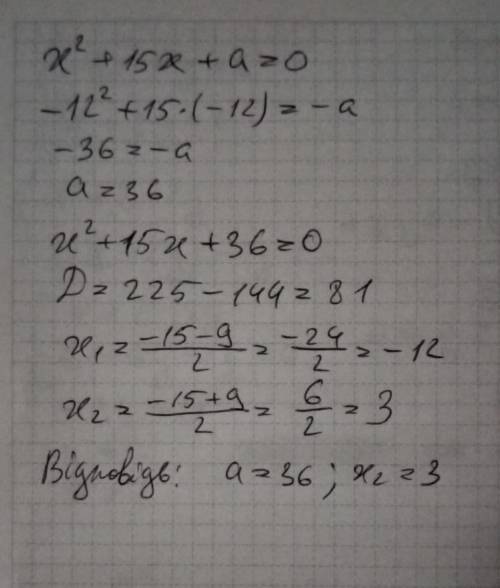 x² + 15x + a = 0
-12² + 15·(-12) = -a
-36 = -a
a = 36
x² + 15x + 36 = 0
D = 225 - 144 = 81
x₁ = (-15-9)/2 = -24/2 = -12
x₂ = (-15+9)/2 = 6/2 = 3
Відповідь: a = 36; x₂ = 3